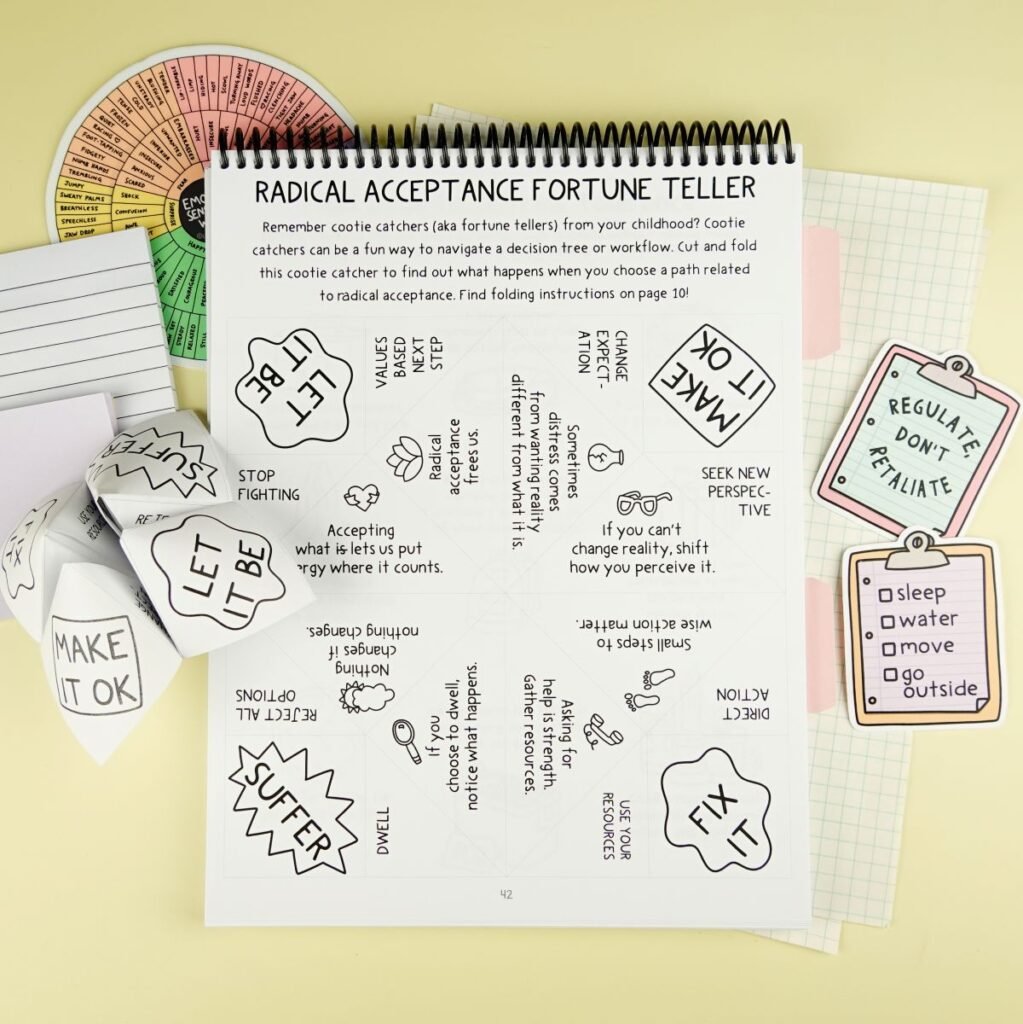 RADICAL ACCEPTANCE FORTUNE TELLER
Remember cootie catchers (aka fortune tellers) from your childhood? Cootie
catchers can be a fun way to navigate a decision tree or workflow. Cut and fold
this cootie catcher to find out what happens when you choose a path related
to radical acceptance. Find folding instructions on page 10!
LET
IT BE
VALUES
BASED
NEXT
STEP
CHANGE
EXPECT-
ATION
MAKE
IT OK
STOP
FIGHTING
Radical
acceptance
frees us.
Sometimes
distress comes
from wanting reality
different from what it is.
SEEK NEW
PERSPEC-
TIVE
Accepting
what is lets us put
ergy where it counts.
If you can't
change reality, shift
how you perceive it.
Nothing
changes if
nothing changes.
Small steps to
wise action matter.
REJECT ALL
OPTIONS
If you
choose to dwell,
notice what happens.
Asking for
help is strength.
Gather resources.
DIRECT
ACTION
SUFFER
DWELL
USE YOUR
RESOURCES
FIX
IT
42
SUFFER
LET
IT BE
MAKE
IT OK
FIX
IT
REGULATE,
DON'T
RETALIATE
sleep
water
move
go
outside
TURNING AWAY
LOUD WORDS
FLUSHED
CLENCHING
TIGHT JAW
HEADACHE
HOT
HIDING
TENSE
FROZEN
COLD
QUIET
RACING
FOOT-TAPPING
FIDGETY
NUMB HANDS
TREMBLING
JUMPY
SWEATY PALMS
BREATHLESS
SPEECHLESS
JAW DROP
EMBARRASSED
UNWANTED
INFERIOR
INSECURE
ANXIOUS
SCARED
SHOCK
CONFUSION
FEAR
SURPRISE
HAPPY
SATISFIED
COURAGEOUS
STEADY
RELAXED